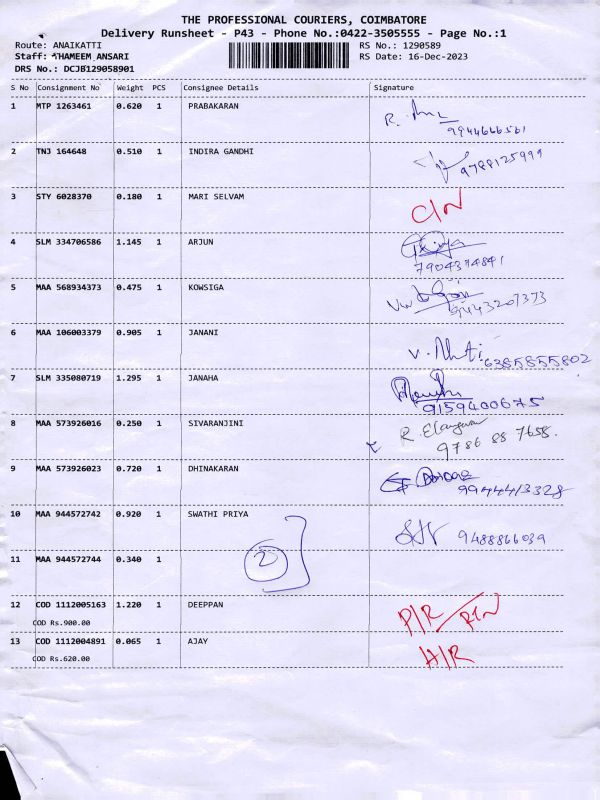 THE PROFESSIONAL COURIERS, COIMBATORE
Delivery Runsheet - P43 - Phone No.:0422-3505555 - Page No.:1
Route: ANAIKATTI RS No.: 1290589
Staff: THAMEEM ANSARI RS Date: 16-Dec-2023
DRS No.: DCJB129058901
S No Consignment No Weight PCS Consignee Details Signature
1 MTP 1263461 0.620 1 PRABAKARAN R.
9944666561
2 TNJ 164648 0.510 1 INDIRA GANDHI 9788125999
3 STY 6028370 0.180 1 MARI SELVAM C/N
4 SLM 334706586 1.145 1 ARJUN
7904394841
5 MAA 568934373 0.475 1 KOWSIGA
9443207373
6 MAA 106003379 0.905 1 JANANI V. 6385855802
7 SLM 335080719 1.295 1 JANAHA
9159400675
8 MAA 573926016 0.250 1 SIVARANJINI R. Elangovan
9786 88 7658.
9 MAA 573926023 0.720 1 DHINAKARAN
9944413328
10 MAA 944572742 0.920 1 SWATHI PRIYA 9488866039
11 MAA 944572744 0.340 1 2
12 COD 1112005163 1.220 1 DEEPPAN P/R / RTN
COD Rs.900.00
13 COD 1112004891 0.065 1 AJAY A/R
COD Rs.620.00